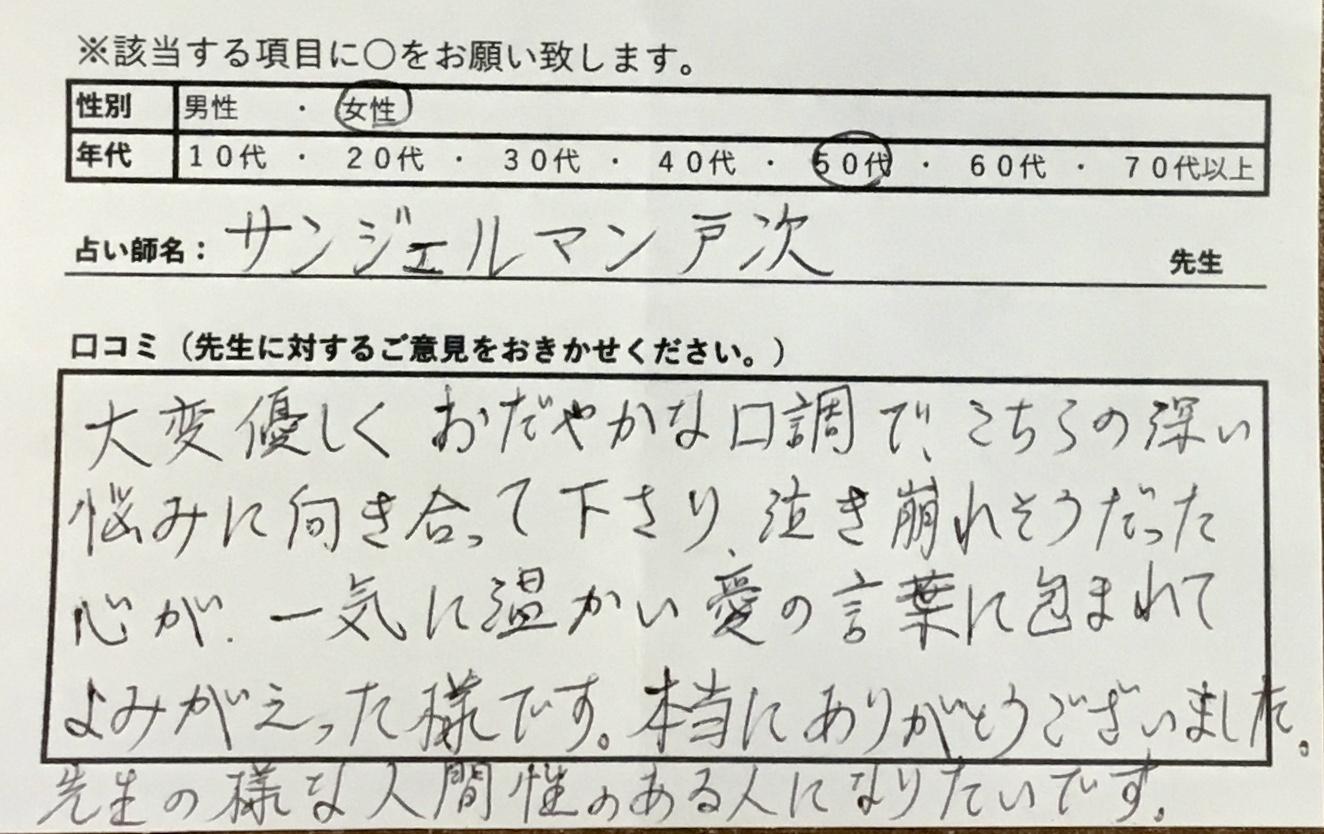 ※該当する項目に〇をお願い致します。
性別 男性 ・ 女性
年代 10代 ・ 20代 ・ 30代 ・ 40代 ・ 50代 ・ 60代 ・ 70代以上
占い師名： サンジェルマン戸次 先生
口コミ（先生に対するご意見をおきかせください。）
大変優しく おだやかな口調で、こちらの深い
悩みに向き合って下さり、泣き崩れそうだった
心が、一気に温かい愛の言葉に包まれて
よみがえった様です。本当にありがとうございました。
先生の様な人間性のある人になりたいです。